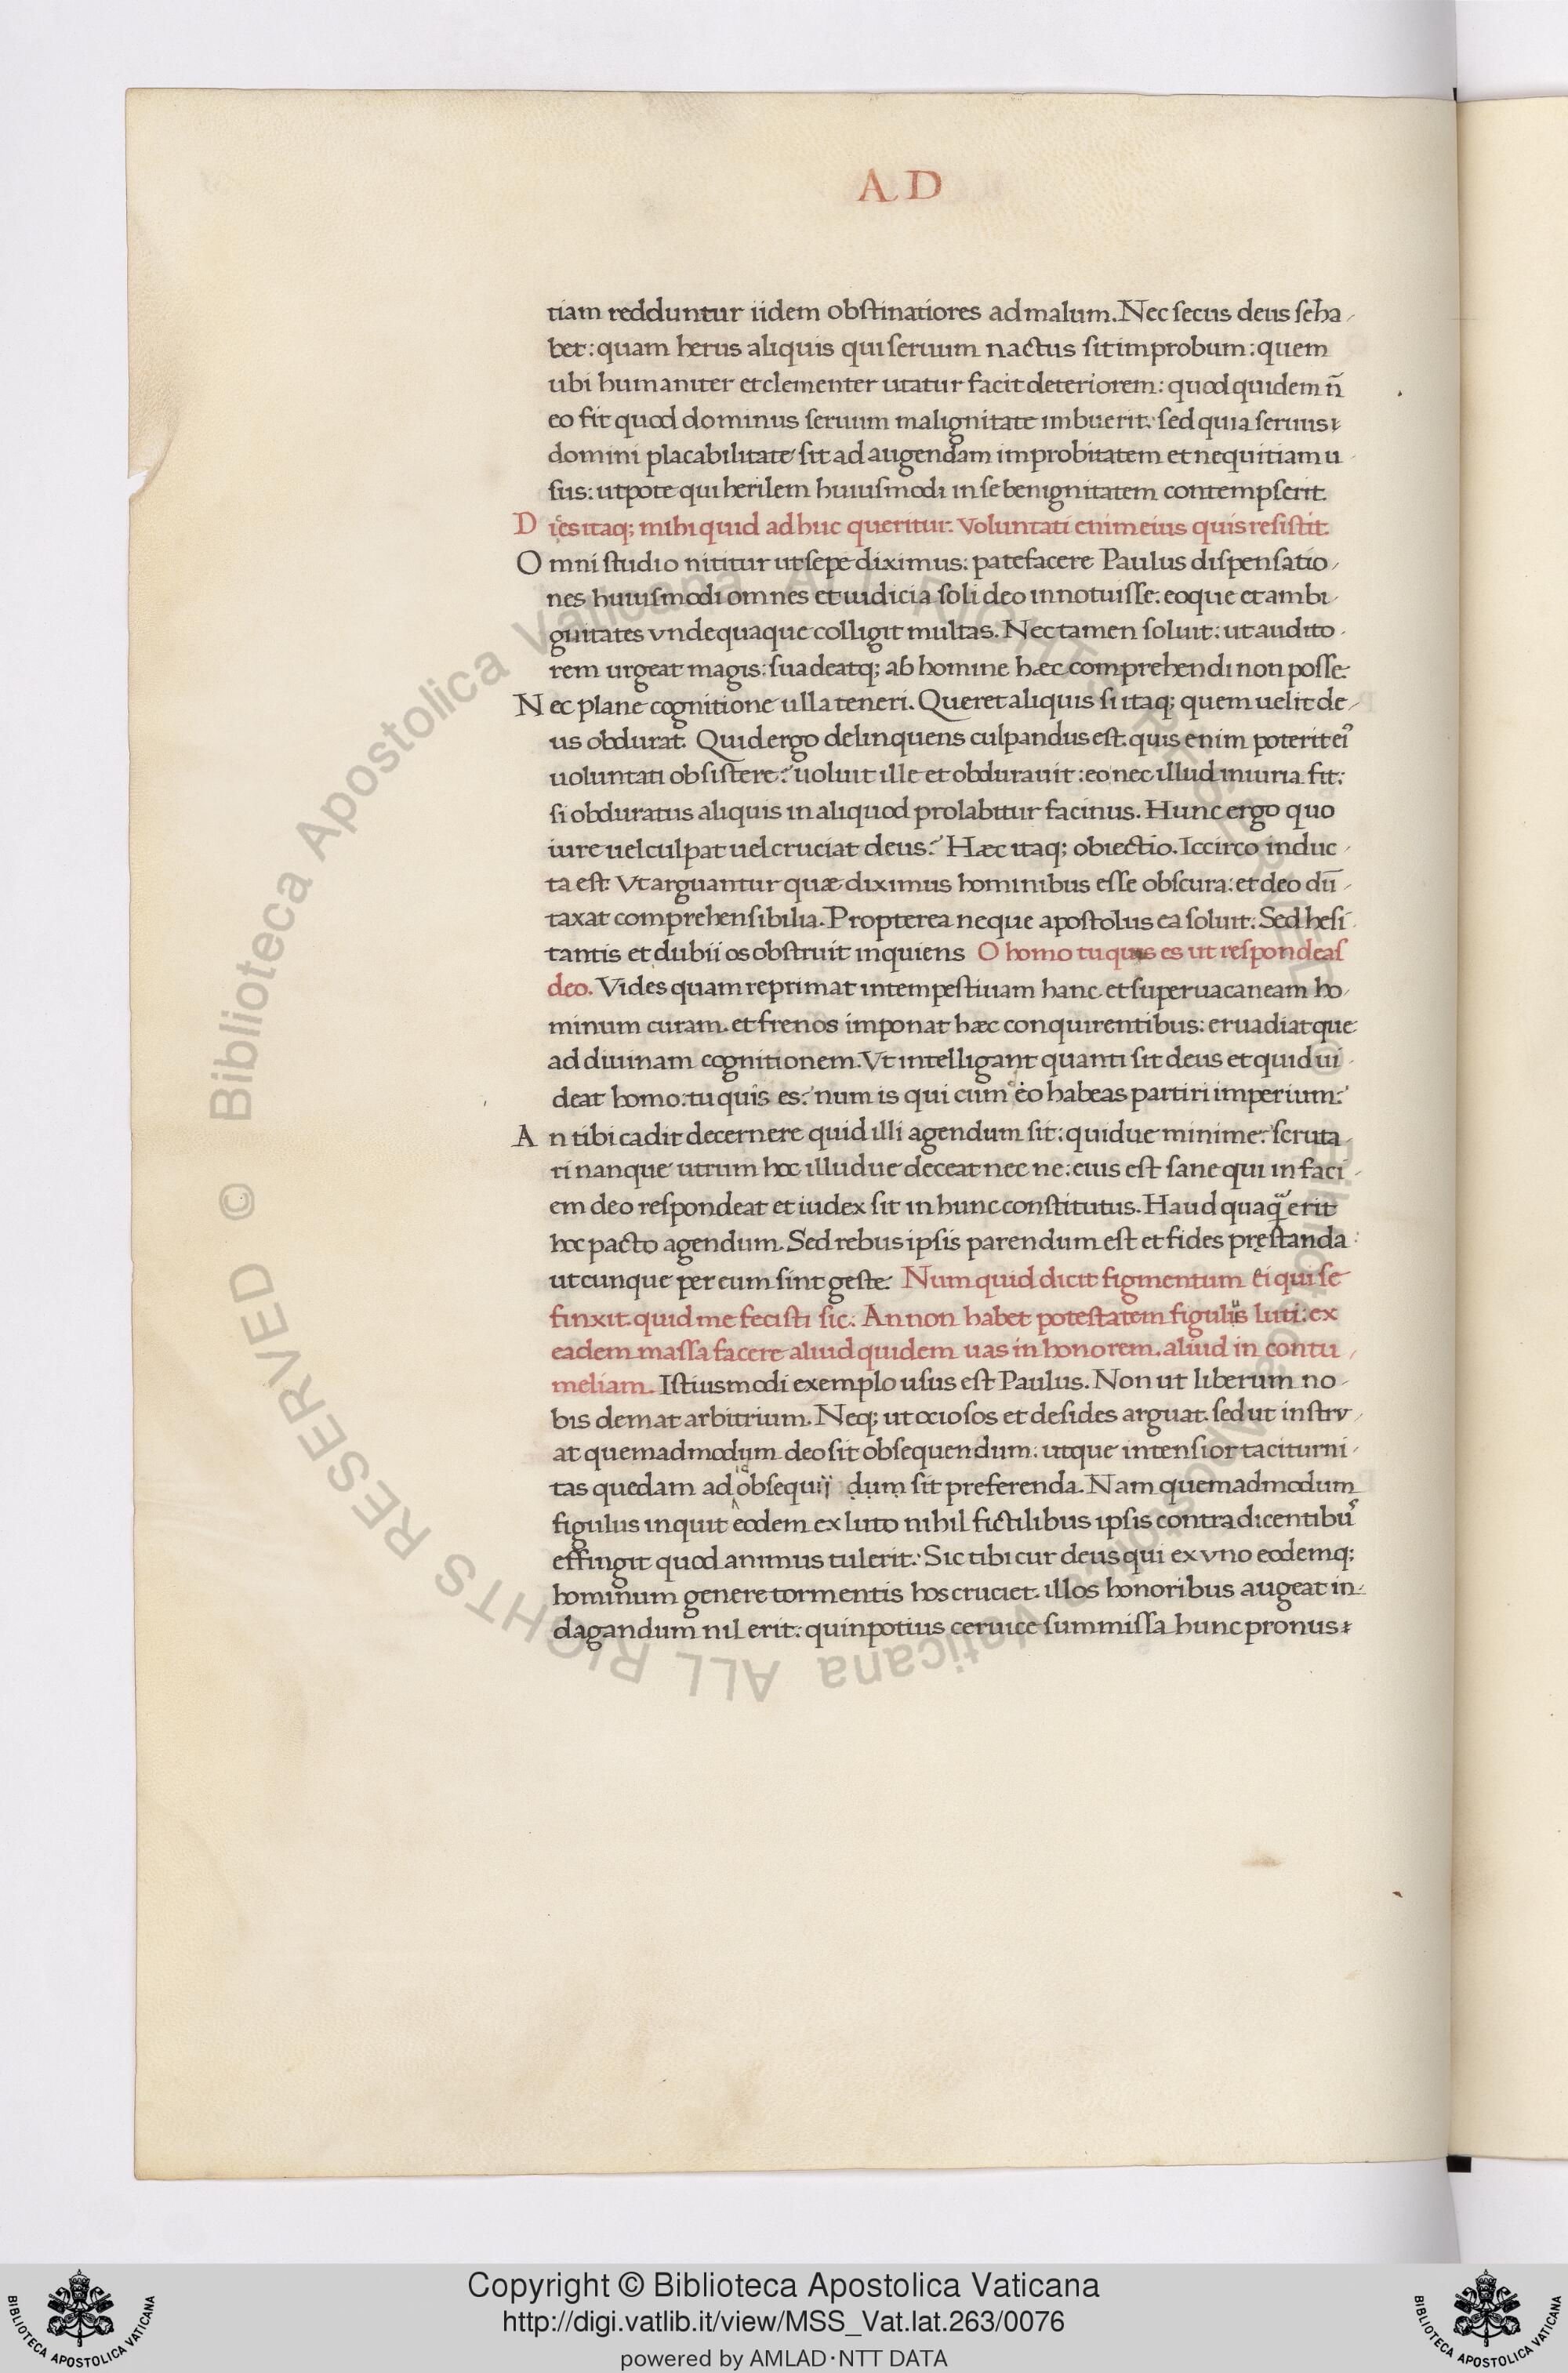 AD
tiam redduntur iidem obstinatiores ad malum. Nec secus deus se ha/
bet: quam herus aliquis qui seruum nactus sit improbum: quem
ubi humaniter et clementer utatur facit deteriorem: quod quidem n̄
eo fit quod dominus seruum malignitate imbuerit: sed quia seruus
domini placabilitate sit ad augendam improbitatem et nequitiam u
sus: utpote qui herilem huiusmodi in se benignitatem contempserit.
Dices itaq; mihi quid adhuc queritur. Voluntati enim eius quis resistit.
Omni studio nititur ut sepe diximus: patefacere Paulus dispensatio/
nes huiusmodi omnes et iudicia soli deo innotuisse. eoque et ambi
guitates vndequaque colligit multas. Nec tamen soluit: ut audito
rem urgeat magis: suadeatq; ab homine hæc comprehendi non posse.
Nec plane cognitione ulla teneri. Queret aliquis si itaq; quem uelit de/
us obdurat. Quid ergo delinquens culpandus est. quis enim poterit ei9
uoluntati obsistere? uoluit ille et obdurauit: eo nec illud iniuria fit:
si obduratus aliquis in aliquod prolabitur facinus. Hunc ergo quo
iure uel culpat uel cruciat deus? Hæc itaq; obiectio. Iccirco induc
ta est. Vt arguantur quæ diximus hominibus esse obscura: et deo dū
taxat comprehensibilia. Propterea neque apostolus ea soluit. Sed hesi
tantis et dubii os obstruit inquiens O homo tu quis es ut respondeas
deo. Vides quam reprimat intempestiuam hanc et superuacaneam ho
minum curam. et frenos imponat hæc conquirentibus: eruadiatque
ad diuinam cognitionem. Vt intelligant quanti sit deus et quid ui
deat homo: tu quis es? num is qui cum eo habeas partiri imperium?
An tibi cadit decernere quid illi agendum sit: quidue minime? scruta
ri nanque utrum hoc illudue deceat nec ne: eius est sane qui in faci
em deo respondeat et iudex sit in hunc constitutus. Haud quaq̃ erit
hoc pacto agendum. Sed rebus ipsis parendum est et fides pręstanda
utcunque per eum sint geste. Num quid dicit figmentum ei qui se
finxit. quid me fecisti sic. An non habet potestatem figulus luti: ex
eadem massa facere aliud quidem uas in honorem. aliud in contu/
meliam. Istiusmodi exemplo usus est Paulus. Non ut liberum no
bis demat arbitrium. Neq; ut ociosos et desides arguat. sed ut instrv/
at quemadmodum deo sit obsequendum: utque intensior taciturni
tas quedam ad obsequii dum sit preferenda. Nam quemadmodum
figulus inquit eodem ex luto nihil fictilibus ipsis contradicentibus
effingit quod animus tulerit: Sic tibi cur deus qui ex vno eodemq;
hominum genere tormentis hos cruciet. illos honoribus augeat in
dagandum nil erit: quin potius ceruice summissa hunc pronus
© Biblioteca Apostolica Vaticana ALL RIGHTS RESERVED
© Biblioteca Apostolica Vaticana ALL RIGHTS RESERVED
Copyright © Biblioteca Apostolica Vaticana
http://digi.vatlib.it/view/MSS_Vat.lat.263/0076
powered by AMLAD·NTT DATA
BIBLIOTECA APOSTOLICA VATICANA
BIBLIOTECA APOSTOLICA VATICANA